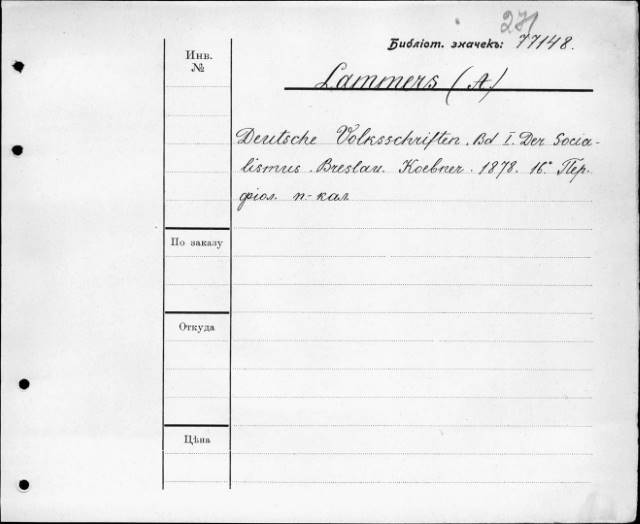 271
Библіот. значекъ: 77148.
Инв. №
Lammers (A)
Deutsche Volksschriften. Bd I. Der Socia-
lismus. Breslau. Koebner. 1878. 16° Пер.
фіол. п-кал
По заказу
Откуда
Цѣна